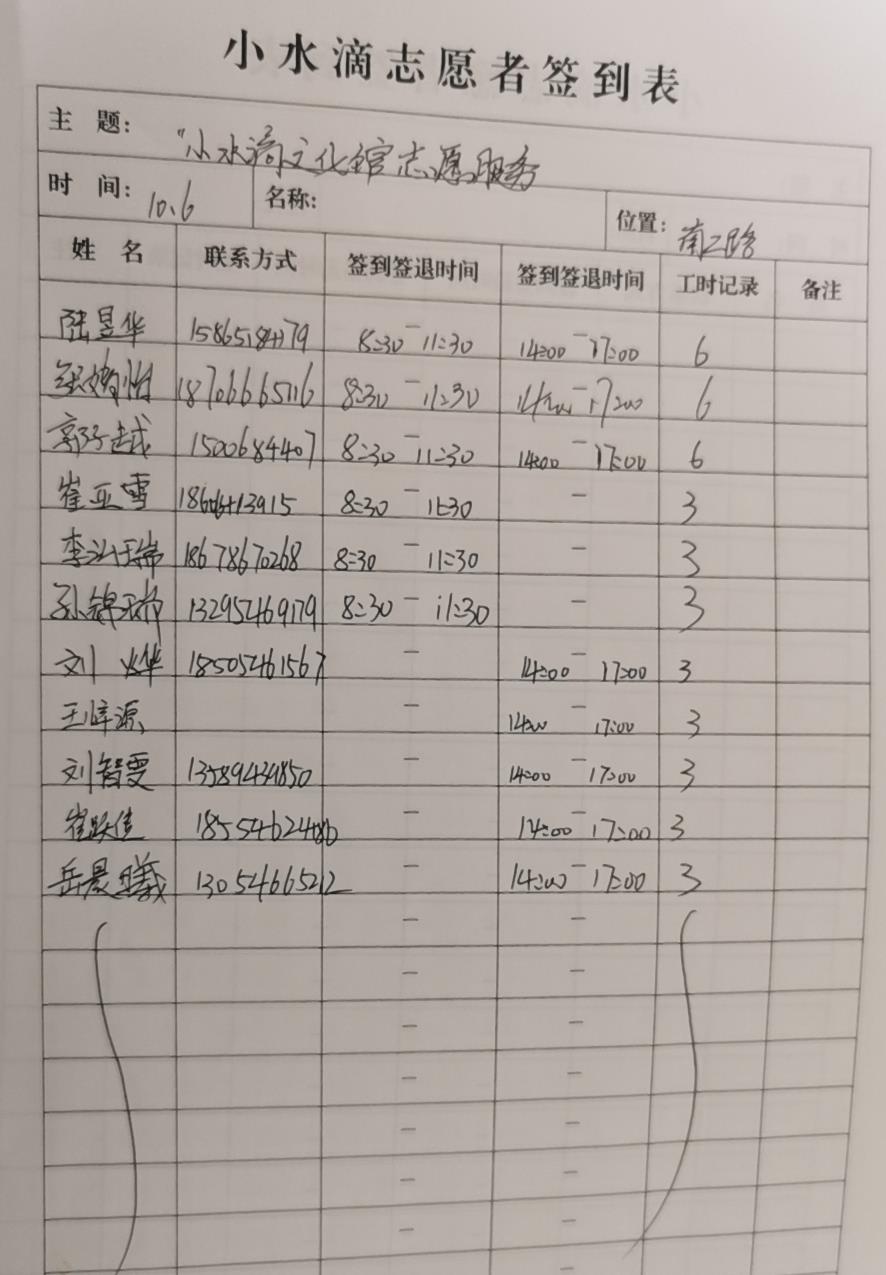 小水滴志愿者签到表
主 题： "小水滴文化馆志愿服务
时 间： 10.6 名称： 位置： 南二路
姓 名 联系方式 签到签退时间 签到签退时间 工时记录 备注
陆昱华 8:30 — 11:30 14:00 — 17:00 6
18706665116 8:30 — 11:30 14:00 — 17:00 6
郭子越 1500684407 8:30 — 11:30 14:00 — 17:00 6
崔亚雪 8:30 — 11:30 — 3
李 18678670268 8:30 — 11:30 — 3
孙锦 13295469179 8:30 — 11:30 — 3
刘 华 18505461567 — 14:00 — 17:00 3
王梓源 — 14:00 — 17:00 3
刘智雯 13589439850 — 14:00 — 17:00 3
崔跃佳 — 14:00 — 17:00 3
岳晨曦 13054665212 — 14:00 — 17:00 3
— —
— —
— —
— —
— —
— —
— —
—